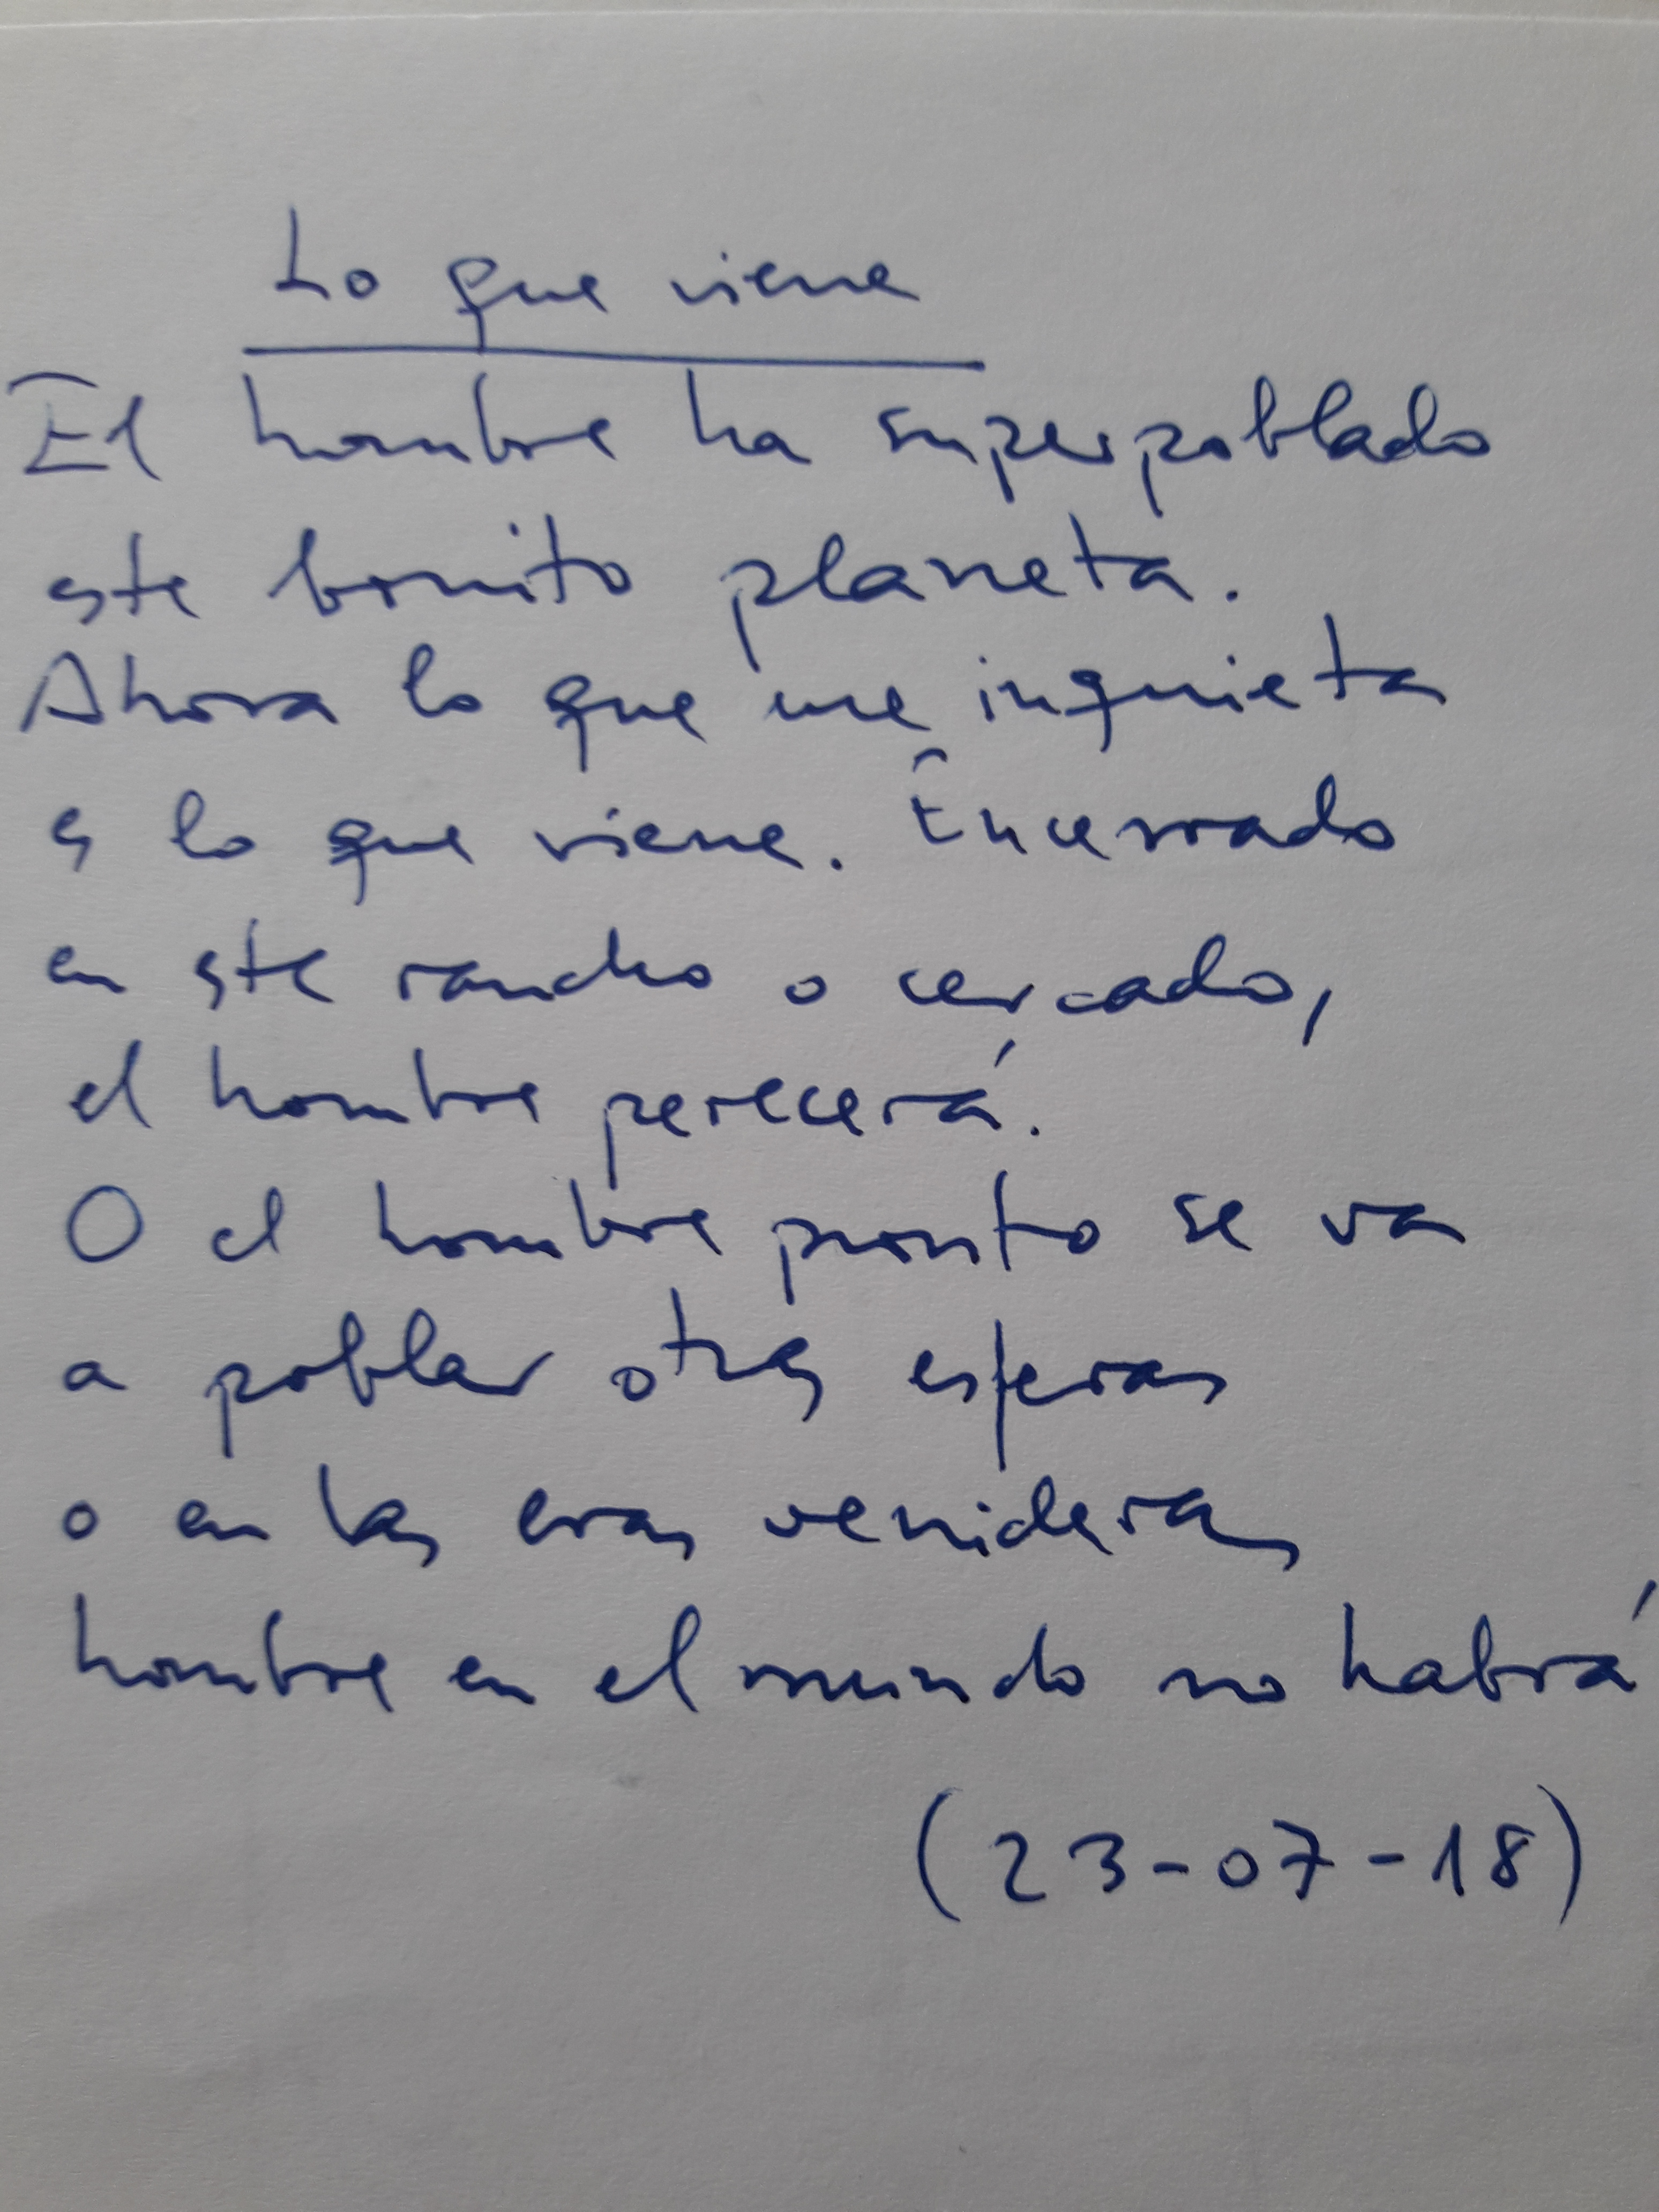 Lo que viene
El hombre ha superpoblado
este bonito planeta.
Ahora lo que me inquieta
es lo que viene. Encerrado
en este rancho o cercado,
el hombre perecerá.
O el hombre pronto se va
a poblar otras esferas
o en las eras venideras
hombre en el mundo no habrá
(23-07-18)